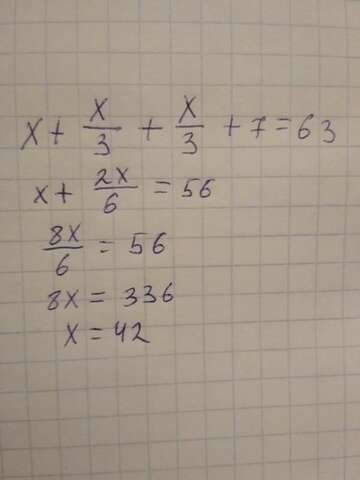 x + x/3 + x/3 + 7 = 63
x + 2x/6 = 56
8x/6 = 56
8x = 336
x = 42